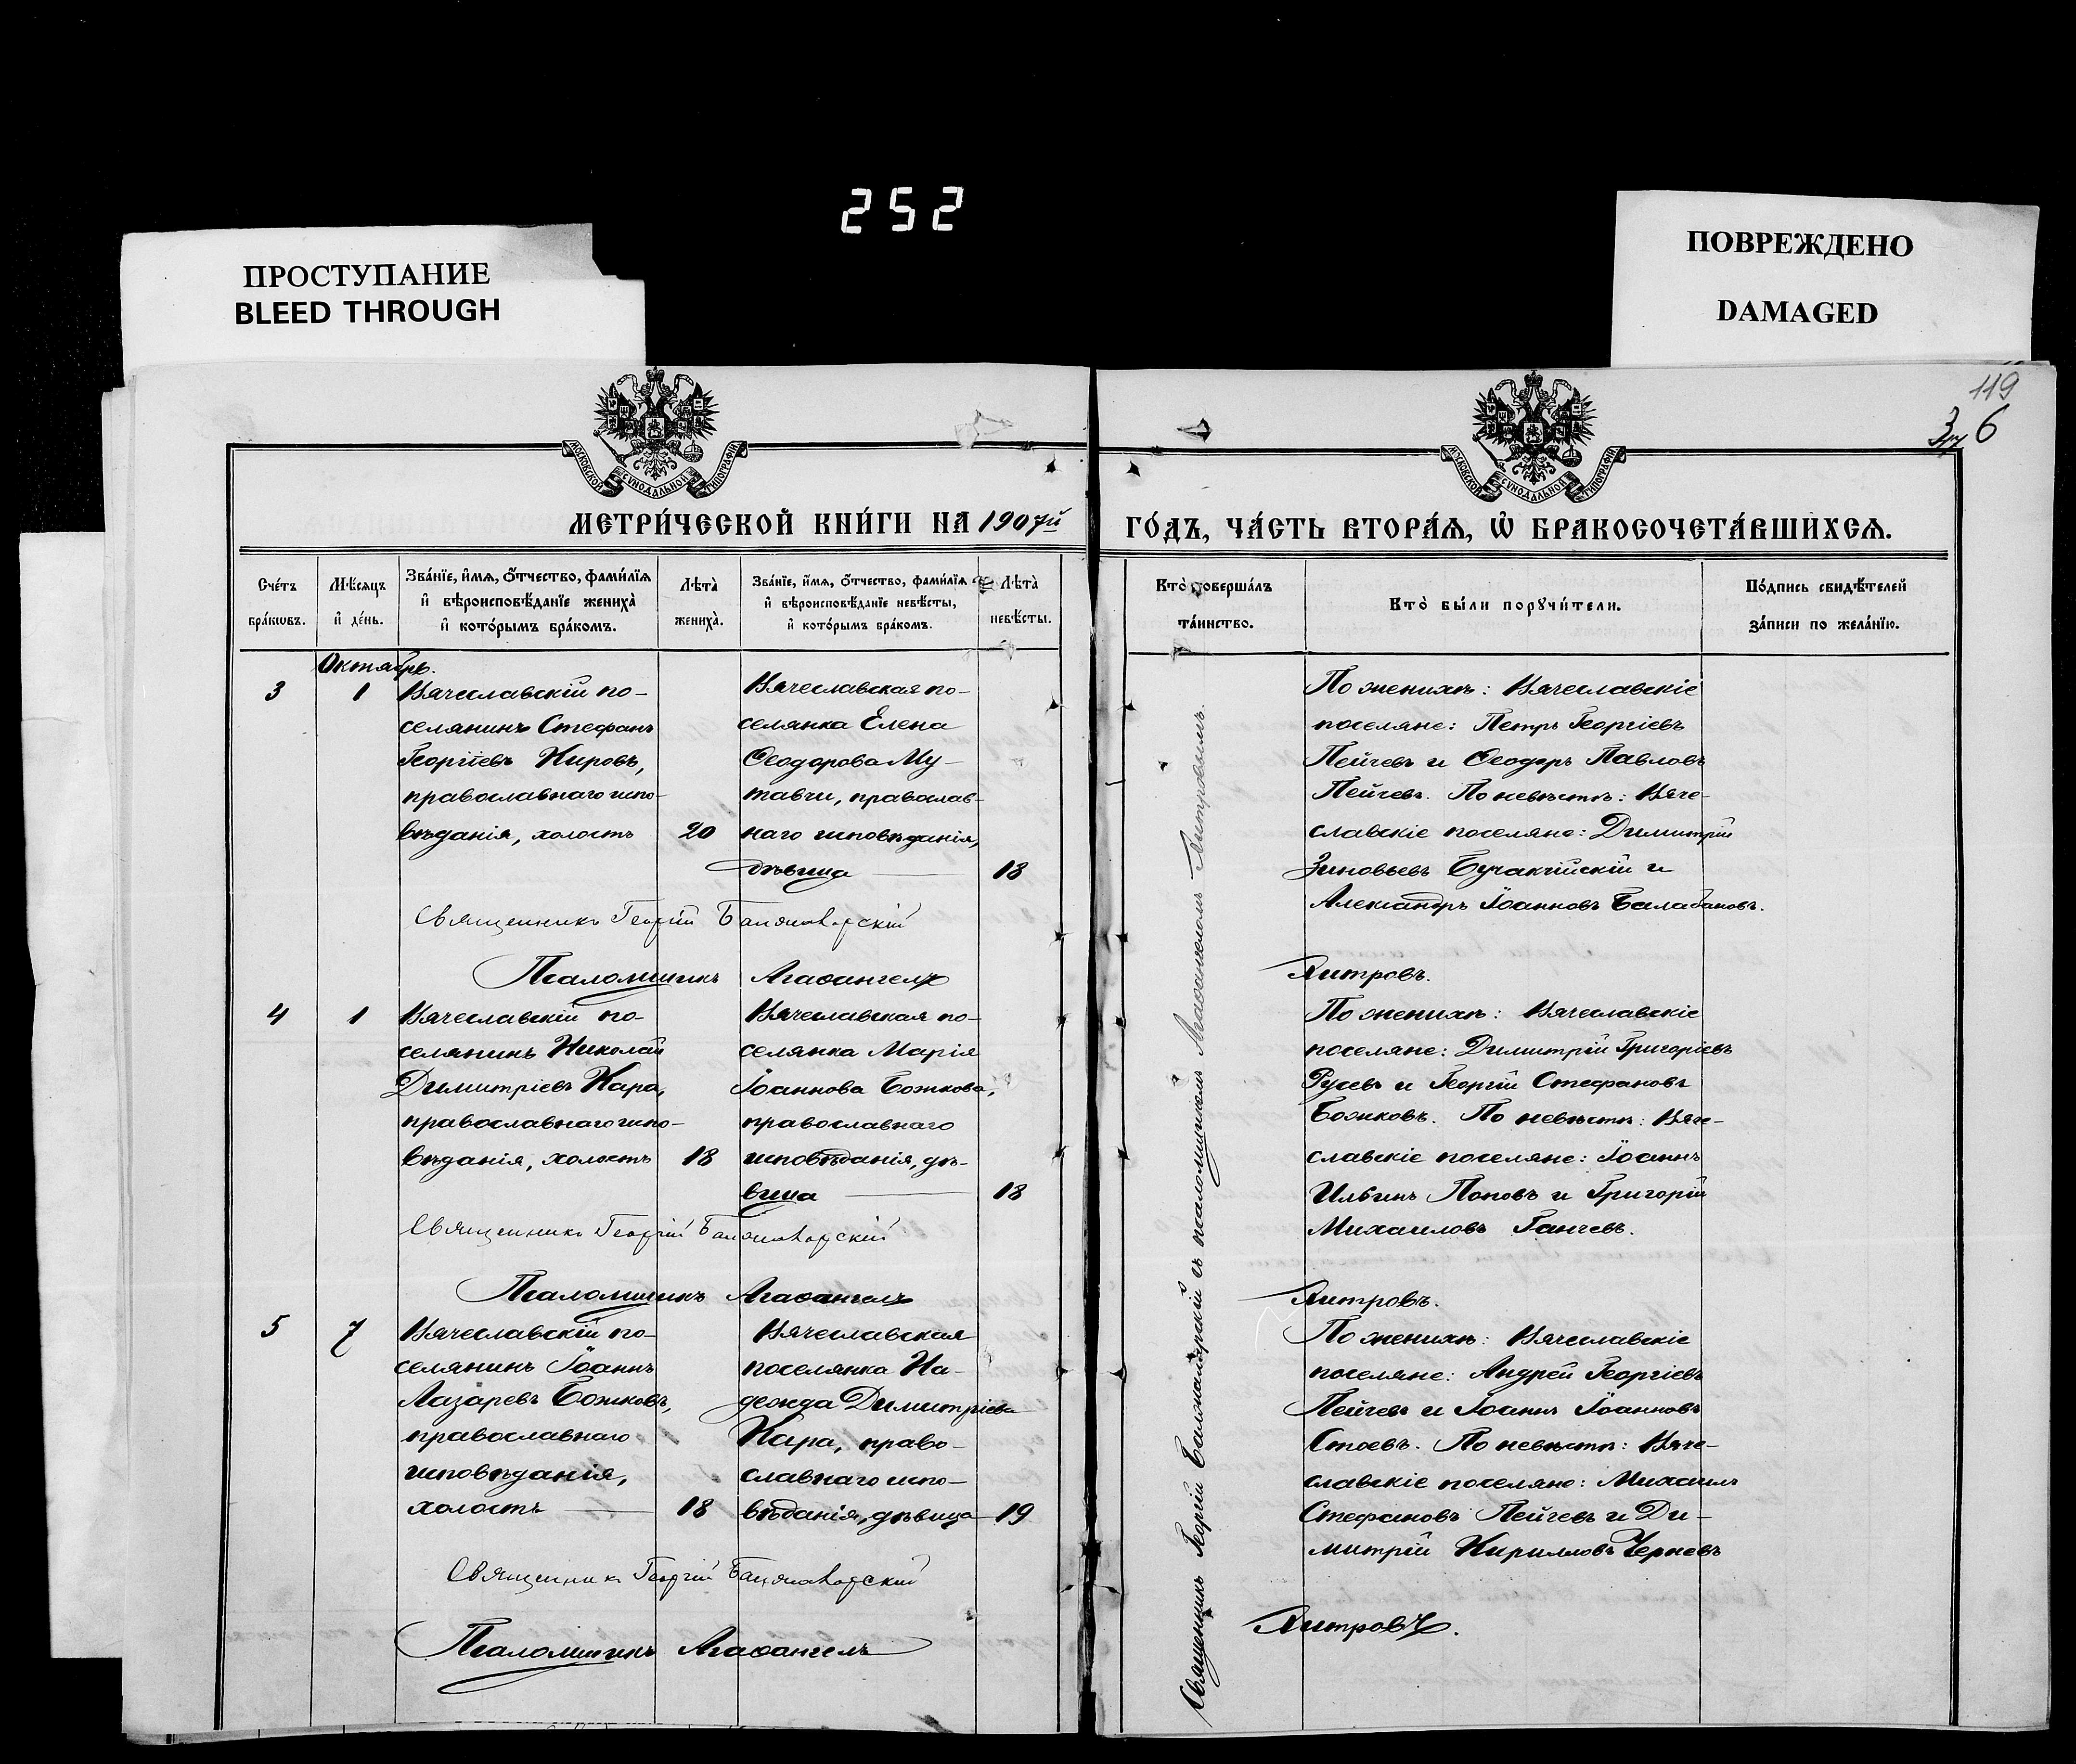 252
ПРОСТУПАНИЕ
BLEED THROUGH
ПОВРЕЖДЕНО
DAMAGED
119
6
МОСКОВСКОЙ СѴНОДАЛЬНОЙ ТИПОГРАФІИ
МОСКОВСКОЙ СѴНОДАЛЬНОЙ ТИПОГРАФІИ
МЕТРИ́ЧЕСКОЙ КНИ́ГИ НА 1907й
ГО́ДЪ, ЧА́СТЬ ВТОРА́Ѧ, Ѽ БРАКОСОЧЕТА́ВШИХСѦ.
Сче́тъ
бра́кѡвъ.
Мѣ́сѧцъ
и҆ де́нь.
Зва́нїе, и҆́мѧ, ѻ҆́тчество, фами́лїѧ
и҆ вѣроисповѣ́данїе жениха̀
и҆ кото́рымъ бра́комъ.
Лѣта̀
жениха̀.
Зва́нїе, и҆́мѧ, ѻ҆́тчество, фами́лїѧ
и҆ вѣроисповѣ́данїе невѣ́сты,
и҆ кото́рымъ бра́комъ.
Лѣта̀
невѣ́сты.
Кто̀ совершалъ
та́инство.
Кто̀ бы́ли порꙋчи́тели.
По́дпись свидѣ́телей
за́писи по жела́нїю.
Октябрь.
3
1
Вячеславскій по-
селянинъ Стефанъ
Георгіевъ Кировъ,
православнаго испо-
вѣданія, холостъ
20
Вячеславская по-
селянка Елена
Ѳеодорова Му-
тавчи, православ-
наго исповѣданія,
дѣвица
18
По женихѣ: Вячеславскіе
поселяне: Петръ Георгіевъ
Пейчевъ и Ѳеодоръ Павловъ
Пейчевъ. По невѣстѣ: Вяче-
славскіе поселяне: Димитрій
Зиновьевъ Бучакчійскій и
Александръ Іоанновъ Балабановъ.
Священникъ Георгій
Псаломщикъ Агаѳангелъ
Хитровъ.
4
1
Вячеславскій по-
селянинъ Николай
Димитріевъ Кара,
православнаго испо-
вѣданія, холостъ
18
Вячеславская по-
селянка Марія
Іоаннова Божкова,
православнаго
исповѣданія, дѣ-
вица
18
По женихѣ: Вячеславскіе
поселяне: Димитрій Григоріевъ
Русевъ и Георгій Стефановъ
Божковъ. По невѣстѣ: Вяче-
славскіе поселяне: Іоаннъ
Ильинъ Поповъ и Григорій
Михаиловъ Ганчевъ.
Священникъ Георгій
Псаломщикъ Агаѳангелъ
Хитровъ.
5
7
Вячеславскій по-
селянинъ Іоаннъ
Лазаревъ Божковъ,
православнаго
исповѣданія,
холостъ
18
Вячеславская
поселянка На-
дежда Димитріева
Кара, право-
славнаго испо-
вѣданія, дѣвица
19
По женихѣ: Вячеславскіе
поселяне: Андрей Георгіевъ
Пейчевъ и Іоаннъ Іоанновъ
Стоевъ. По невѣстѣ: Вяче-
славскіе поселяне: Михаилъ
Стефановъ Пейчевъ и Ди-
митрій Кирилловъ Черневъ
Священникъ Георгій
Псаломщикъ Агаѳангелъ
Хитровъ.
Священникъ Георгій съ псаломщикомъ Агаѳангеломъ Хитровымъ.